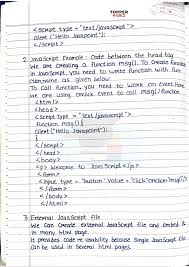 TOPPER
WORLD
<script type = "text/javascript">
alert ("Hello Javapoint");
</script>
2. JavaScript Example: Code between the head tag
We are creating a function msg(). To create function
in JavaScript, you need to write function with function
name as given below.
To call function, you need to work on event. Here
we are using onclick event to call msg() function
<html>
<head>
<script type = "text/javascript">
function msg() {
alert ("Hello Javapoint");
}
</script>
</head>
<body>
<p> Welcome to JavaScript </p>
<form>
<input type = "button" value = "click" onclick="msg()"
</form>
</body>
</html>
3. External JavaScript file
We can create external JavaScript file and embed it
in many html page.
It provides code re usability because single JavaScript file
can be used in several html pages.